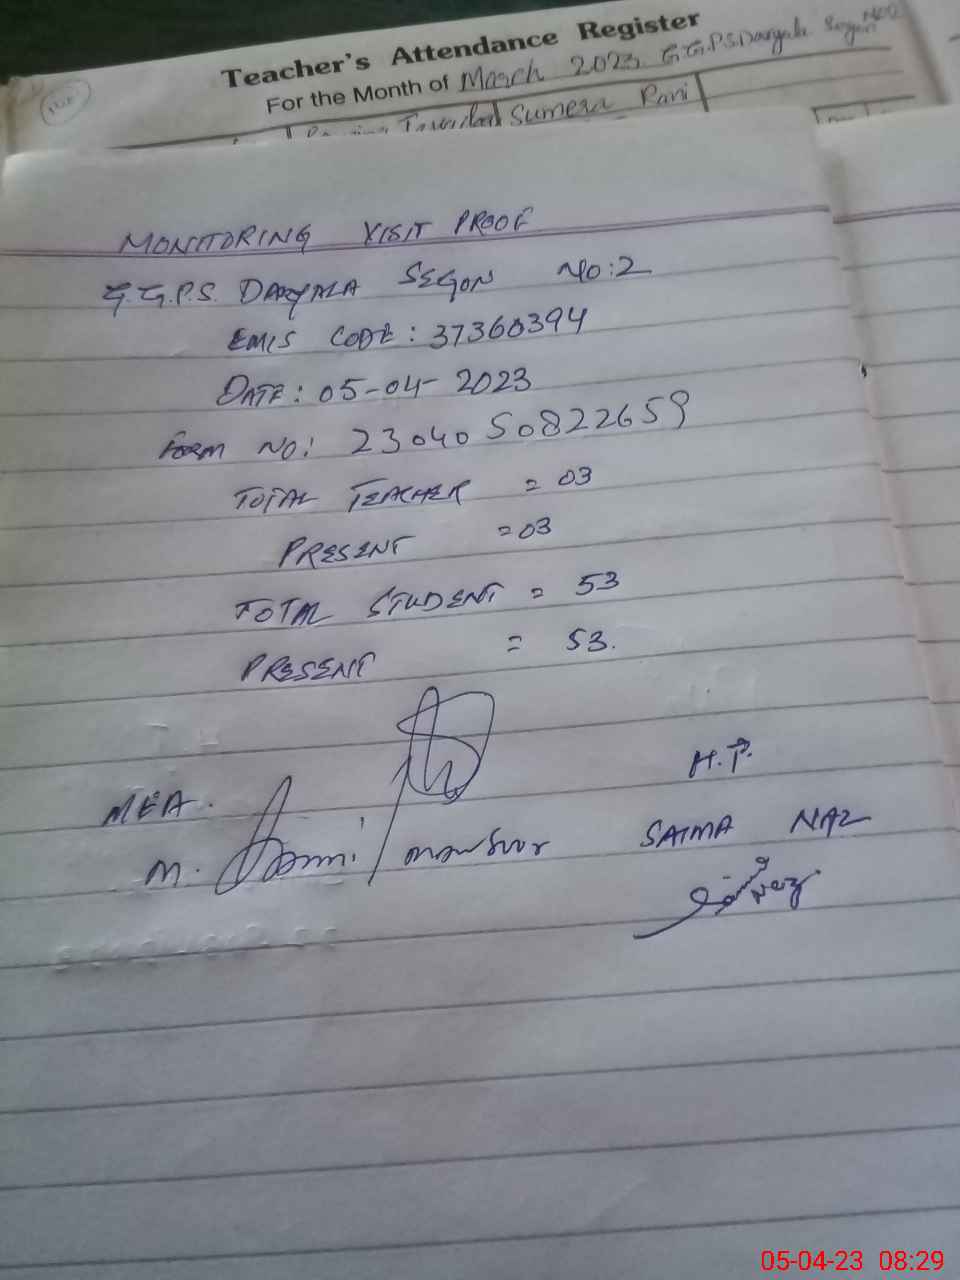 Teacher's Attendance Register
For the Month of March 2023 G.G.P.S Daryala Segon No2
Sumera Rani
MONITORING VISIT PROOF
G.G.P.S. DARYALA SEGON NO:2
EMIS CODE: 37360394
DATE: 05-04-2023
FORM NO: 2304050822659
TOTAL TEACHER = 03
PRESENT = 03
TOTAL STUDENT = 53
PRESENT = 53.
H.T.
MEA.
M. mansoor
SAIMA NAZ
Saima Naz
05-04-23 08:29